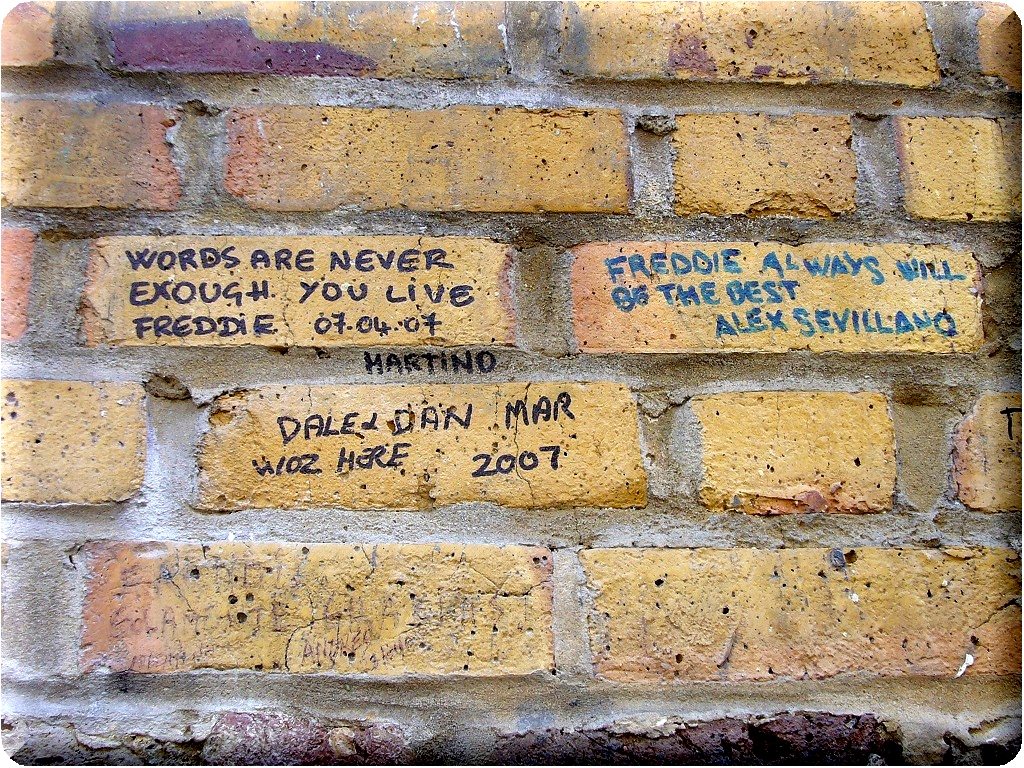 WORDS ARE NEVER
EXOUGH. YOU LIVE
FREDDIE 07.04.07
MARTINO
FREDDIE ALWAYS WILL
BE THE BEST
ALEX SEVILLANO
DALE & DAN MAR
WOZ HERE 2007